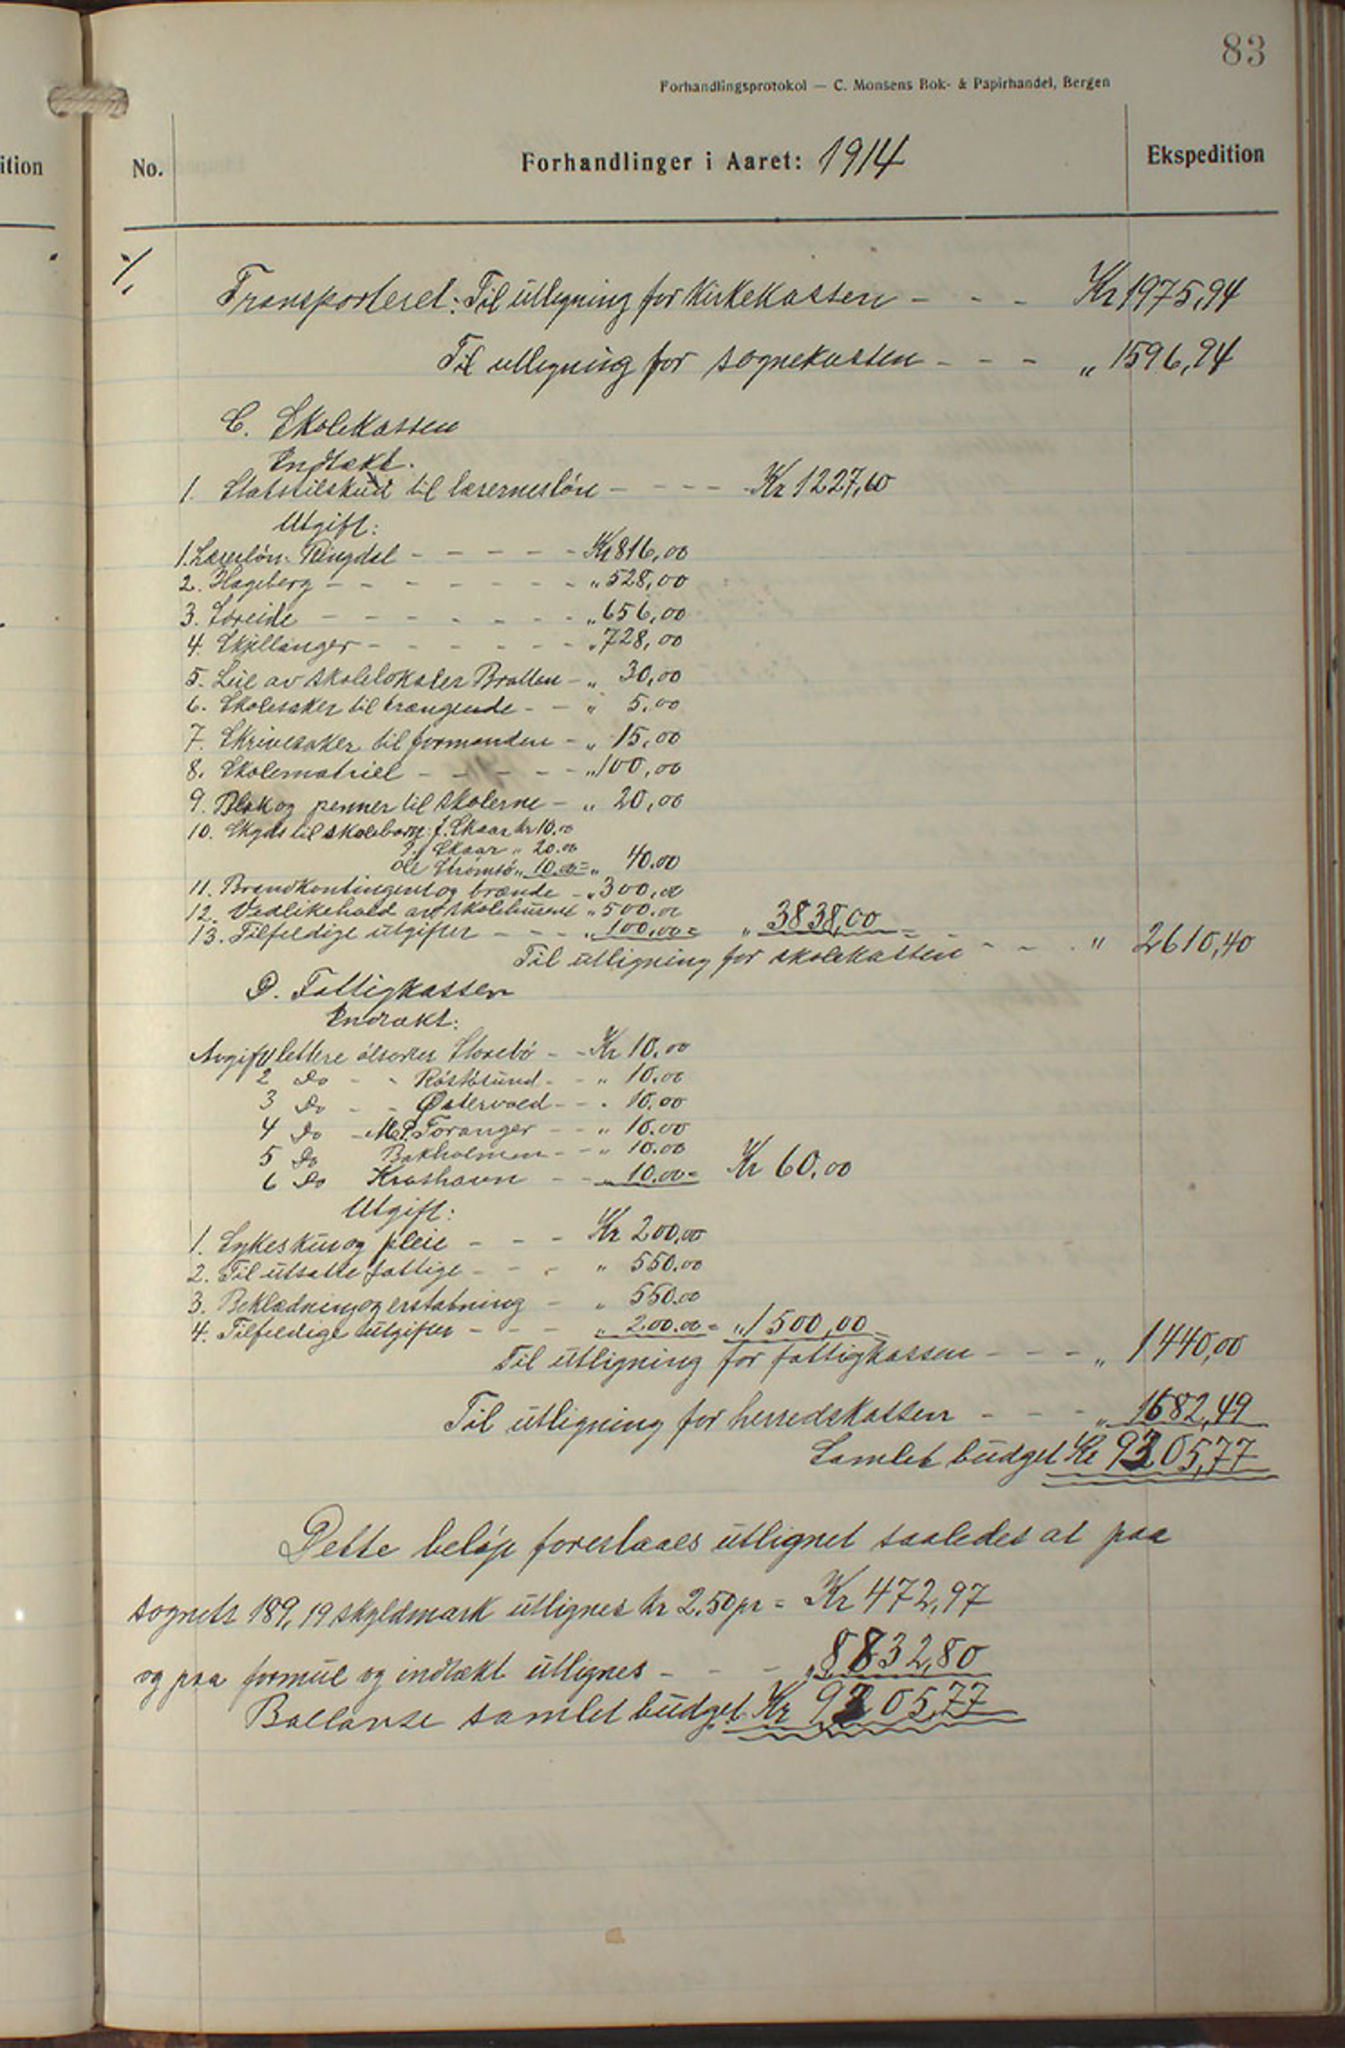 83
Forhandlingsprotokol — C. Monsens Bok- & Papirhandel, Bergen
ition
No.
Forhandlinger i Aaret: 1914
Ekspedition
Transporteret: Til utligning for Kirkekassen - - - Kr 1975,94
Til utligning for sognekassen - - - " 1596,94
C. Skolekassen
Indtækt.
1. Statstilskud til lærernesløn - - - - Kr 1227,60
Utgift:
1. Lærerløn. Ringdal - - - - - Kr 816,00
2. Hageberg - - - - - - - " 528,00
3. Loreide - - - - - - - " 656,00
4. Skjellanger - - - - - - " 728,00
5. Leie av skolelokaler Bratten - " 30,00
6. Skolesaker til trængende - - " 5.00
7. Skrivesaker til formanden - " 15,00
8. Skolematriel - - - - - " 100,00
9. Blæk og penner til skolerne - " 20,00
10. Skyds til skolebarn: J. Skaar kr 10.00
J. Skaar " 20.00
Ole Strømsø " 10.00 = " 40.00
11. Brandkontingent og brænde - " 300,00
12. Vedlikehold av skolehusene " 500.00
13. Tilfeldige utgifter - - - " 100,00 = " 3838,00
Til utligning for skolekassen - - - " 2610,40
D. Fattigkassen
Indtækt:
Avgift lettere ølsorter Storebø - - Kr 10.00
2 Do - - Røstøsund - - " 10.00
3 Do - - Østervold - - . 10.00
4 Do - M. P. Foranger - - " 10.00
5 Do Bakholmen - - " 10.00
6 Do Krosshavn - - " 10.00 = Kr 60,00
Utgift:
1. Sykeskur og pleie - - - Kr 200,00
2. Til utsatte fattige - - - " 550.00
3. Beklædning og erstatning - " 550.00
4. Tilfeldige utgifter - - - " 200.00 = " 1500,00
Til utligning for fattigkassen - - - " 1440,00
Til utligning for herredskassen - - - " 1682,49
Samlet budget Kr 9305,77
Dette beløp foreslaaes utlignet saaledes at paa
sognets 189,19 skyldmark utlignes kr 2.50 pr = Kr 472,97
og paa formue og indtækt utlignes - - - " 8832,80
Ballanse samlet budget Kr 9305,77